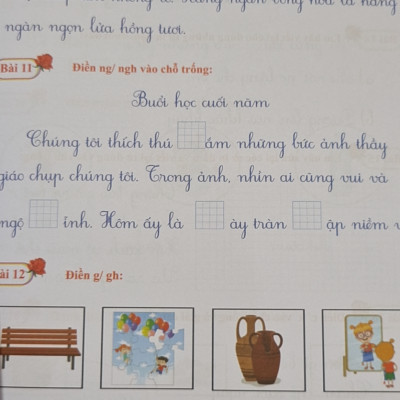 ngàn ngọn lửa hồng tươi.
Bài 11 Điền ng/ ngh vào chỗ trống:
Buổi học cuối năm
Chúng tôi thích thú ám những bức ảnh thầy
giáo chụp chúng tôi. Trong ảnh, nhìn ai cũng vui và
ngộ ĩnh. Hôm ấy là ày tràn ập niềm
ài 12 Điền g/ gh: